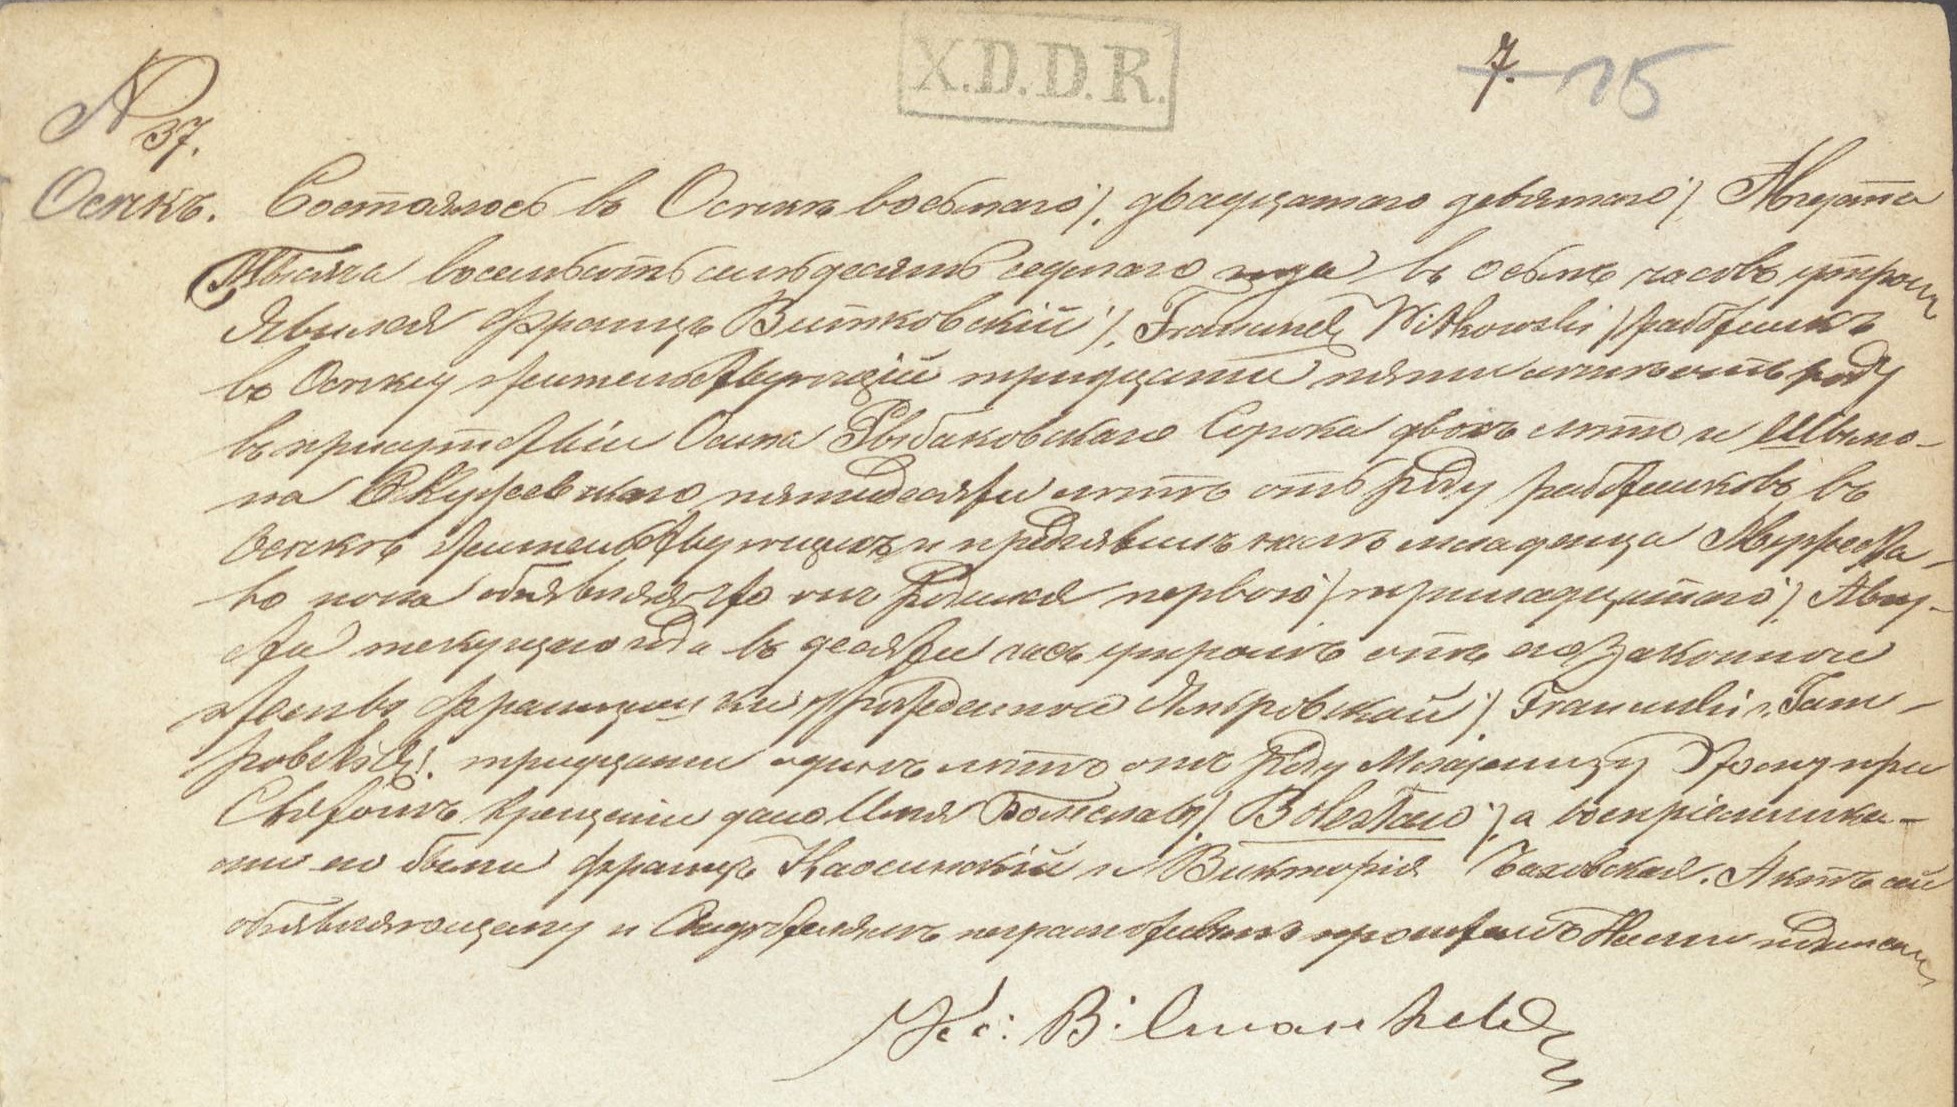 X.D.D.R.
7. 15
№ 37.
Осѣкъ. Состоялось въ Осѣкѣ восьмаго /. двадцатаго девятаго / Августа
Тысяча восемьсотъ семьдесятъ седьмаго года въ часовъ утромъ
Явился Францъ Витковскій /. Witkowski / работникъ
въ Осѣку жительствующій тридцати пяти лѣтъ отъ роду
въ присутствіи Осипа Рыбаковскаго Сорока двохъ лѣтъ и Шимо-
на пятидесяти лѣтъ отъ роду работниковъ въ
Осѣкѣ жительствующихъ и предъявилъ намъ младенца Мужеска-
во пола объявляя что онъ родился перваго / тринадцатаго /. Авгу-
ста текущаго года въ десяти часъ утромъ отъ его законной
жены Францишки урожденной Ямбровской / Franciszki z Jam-
/. тридцати одинъ лѣтъ отъ роду Младенцу Этому при
Святомъ крещеніи дано Имя Болеславъ /. Bolesław /. а воспріемника-
ми его были Францъ и Викторія Чаховская. Актъ сей
объявляющему и Свидѣтелямъ неграмотнымъ прочитанъ Нами подписанъ